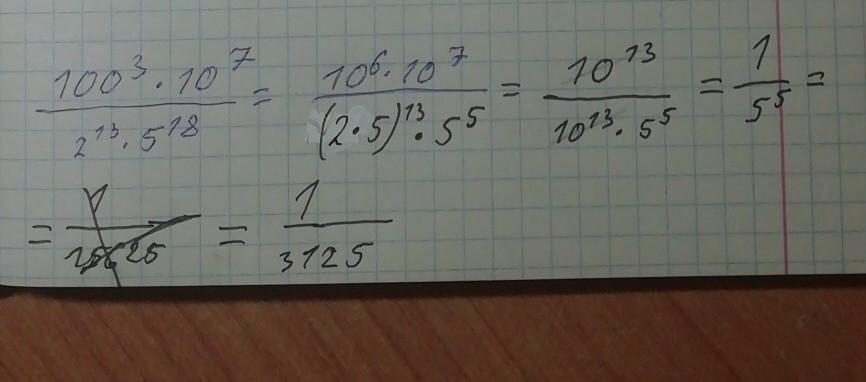 100³·10⁷ / 2¹³·5¹⁸ = 10⁶·10⁷ / (2·5)¹³·5⁵ = 10¹³ / 10¹³·5⁵ = 1 / 5⁵ =
= = 1 / 3125